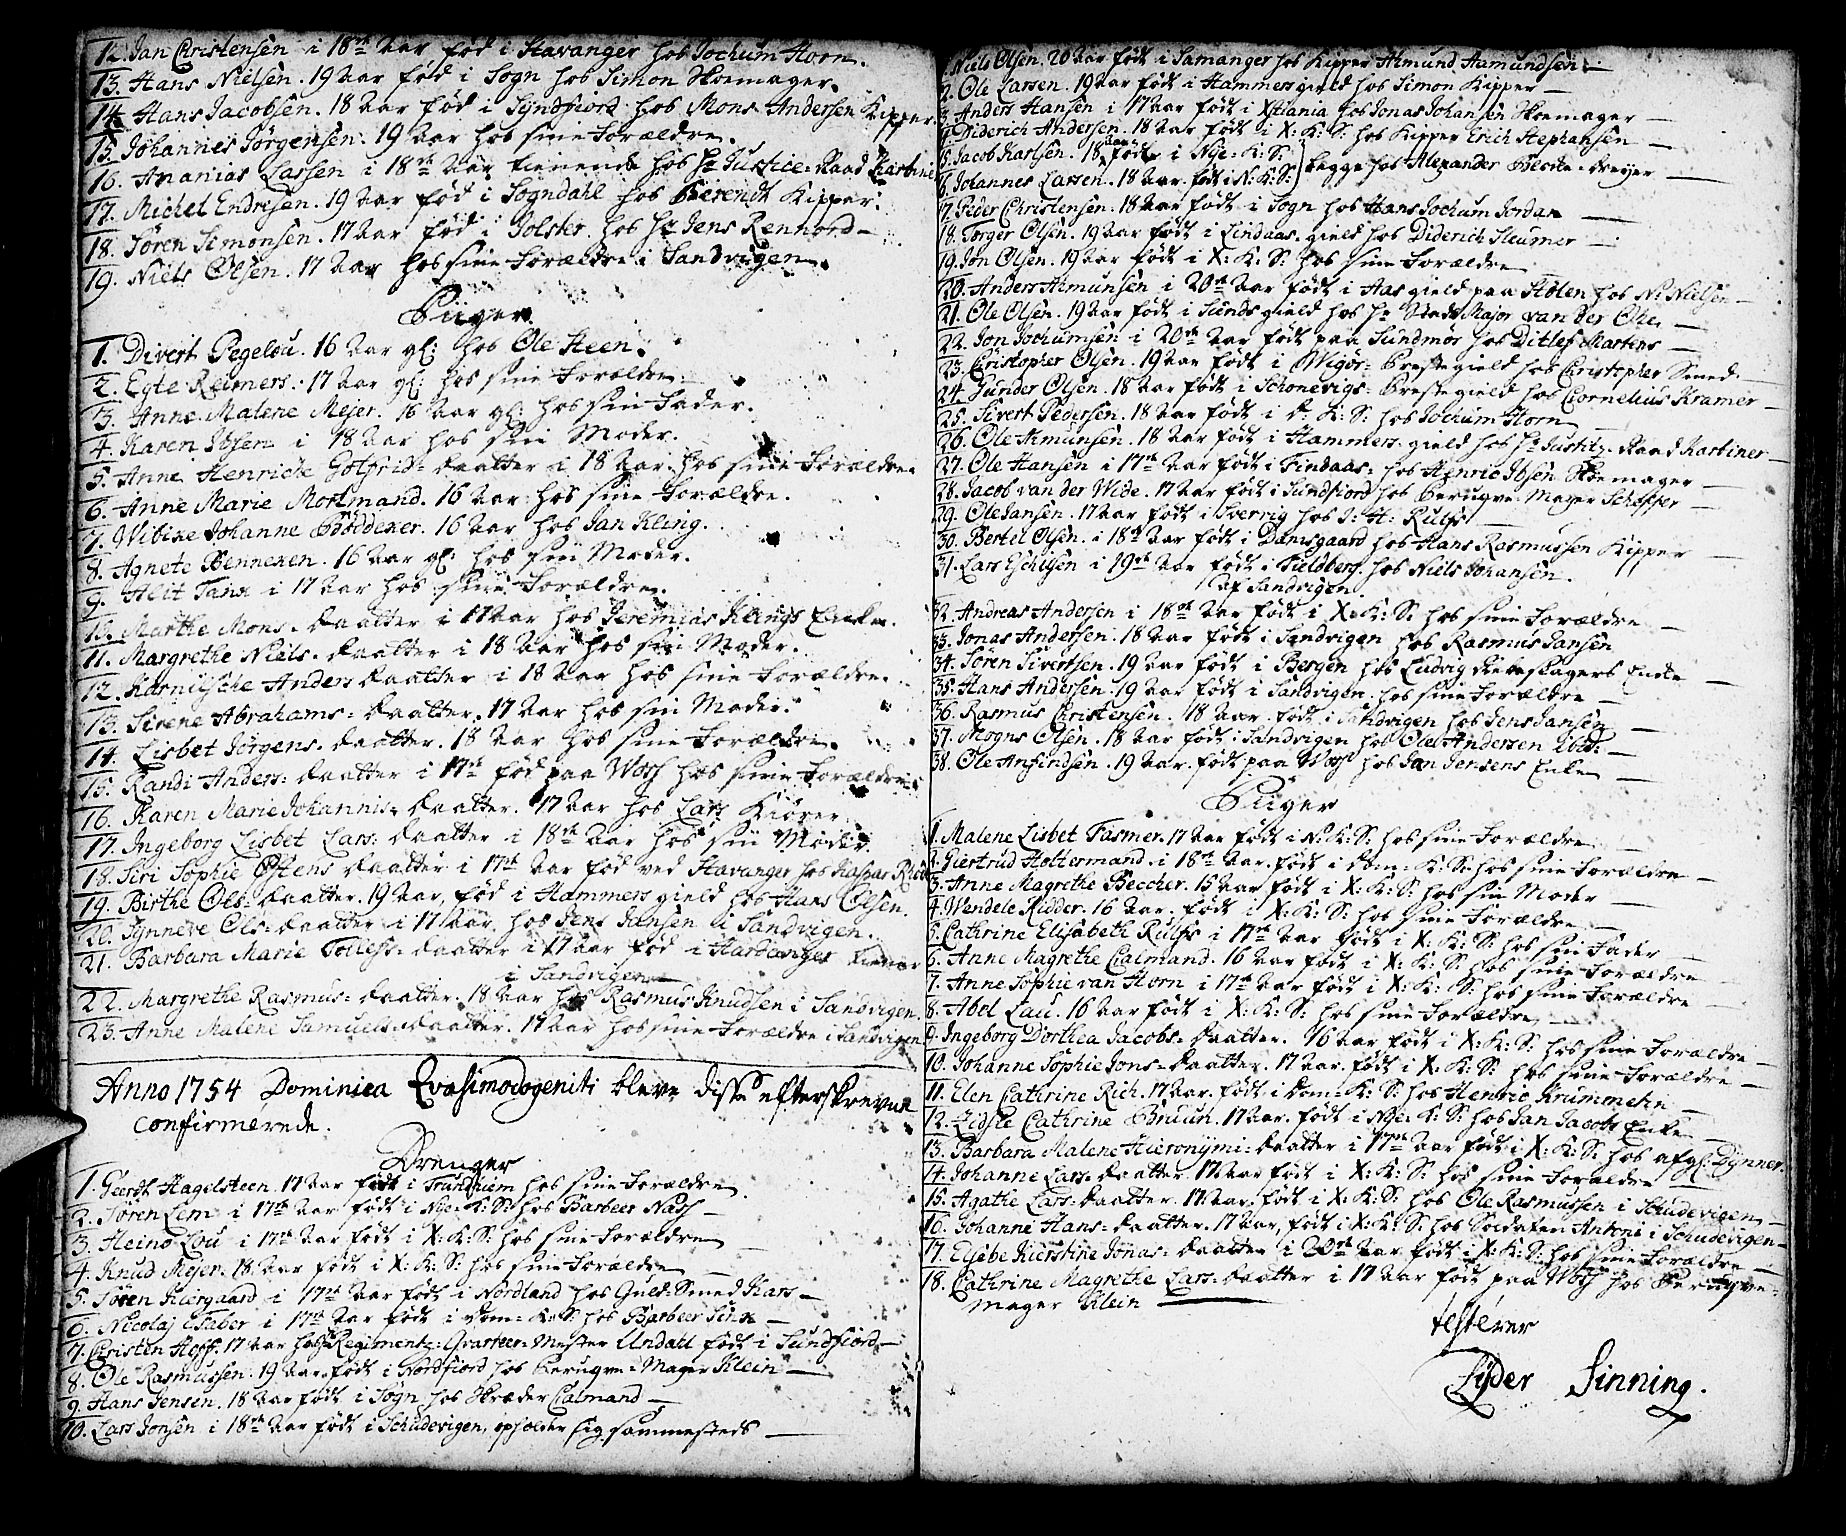 12. Jan Christensen i 18de Aar fød i Stavanger hos Jochum Horn.
13. Hans Nielsen. 19 Aar fød i Sogn hos Simon Skoemager.
14. Hans Jacobsen. 18 Aar fød i Syndfiord hos Mons Andersen Kipper.
15. Johannes Jørgensen. 19 Aar hos sine Forældre.
16. Ananias Lassen i 18de Aar tienende hos Hr Justice-Raad Kartine
17. Michel Endresen. 19 Aar fød i Sogndahl hos Berendt Kipper.
18. Søren Simonsen. 17 Aar fød i Jolster hos Hr Jens Rennord
19. Niels Olsen. 17 Aar hos sine Forældre i Sandvigen.
Piiger
1. Divert Pegelou. 16 Aar gl: hos Ole Steen.
2. Egte Reimers. 17 Aar gl: hos sine Forældre.
3. Anne Malene Mejer. 16 Aar gl: hos sin Fader.
4. Karen Ibsen i 18 Aar hos sin Moder.
5. Anne Henriche Gotfrids-Daatter i 18 Aar hos sine Forældre
6. Anne Marie Mortmand. 16 Aar hos sine Forældre.
7. Wibike Johanne Bøddeker. 16 Aar hos Jan Kling.
8. Agnete Benneken. 16 Aar gl: hos sin Moder.
9. Alit Tank i 17 Aar hos sine Forældre.
10. Marthe Mons-Daatter i 17 Aar hos Jeremias Klings Enke.
11. Margrethe Niels-Daatter i 18 Aar hos sin Moder.
12. Karniische Anders Daatter i 18 Aar hos sine Forældre.
13. Sirene Abrahams-Daatter. 17 Aar hos sin Moder.
14. Lisbet Jørgens-Daatter. 18 Aar hos sine Forældre.
15. Randi Anders-Daatter i 17de fød paa Woss hos sine Forældre
16. Karen Marie Johannis-Daatter. 17 Aar hos Lars Kiører
17. Ingeborg Lisbet Lars-Daatter i 18de Aar hos sin Moder.
18. Siri Sophie Ostens Daatter i 17de Aar fød ved Stavanger hos Kaspar
19. Birthe Ols-Daatter. 19 Aar, fød i Hammers gield hos Hans Olsen.
20. Synneve Ols-Daatter i 17 Aar, hos Jens Jansen i Sandvigen.
21. Barbara Marie Tolless-Daatter i 17 Aar fød i Hardanger tiener
i Sandvigen
22. Margrethe Rasmus-Daatter. 18 Aar hos Rasmus Knudsen i Sandvigen.
23. Anne Malene Samuels-Daatter. 17 Aar hos sine Forældre i Sandvigen
Anno 1754 Dominica Qvasimodogeniti bleve disse efterskrevne
confirmerede.
Drenger
1. Geerdt Hagelsteen. 17 Aar født i Trundhiem hos sine Forældre
2. Søren Lem i 17de Aar født i Nye-K:S: hos Barbeer Nass
3. Heino Lou i 17de Aar født i X:K:S: hos sine Forældre
4. Knud Mejer. 18 Aar født i X:K:S: hos sine Forældre
5. Søren Kiergaard i 17de Aar født i Nordland hos Guld-Smed Hars
6. Nicolaj Taber i 17de Aar født i Dom-K:S: hos Barbeer Sink
7. Christen Hoff. 17 Aar hos Regiments-Qvarteer-Mester Undall født i Sundfiord
8. Ole Rasmussen. 19 Aar født i Nordfiord hos Perugve-Mager Klein
9. Hans Jensen. 18 Aar født i Sogn hos Skræder Calmand
10. Lars Jonsen i 18de Aar født i Schudevigen, opholder sig sammesteds
Niels Olsen. 20 Aar født i Samanger hos Kipper Amund Aamundsen
2. Ole Larsen. 19 Aar født i Hammers gield hos Simon Kipper
3. Anders Hansen i 17 Aar født i Xstiania hos Jonas Johansen Skoemager
4. Diderich Andersen. 18 Aar født i X:K:S: hos Kipper Erich Stephansen
5. Jacob Karlsen. 18 Aar født i Nye-K:S:
6. Johannes Larsen. 18 Aar født i N:K:S: begge hos Alexander Dreyer
17. Peder Christensen. 18 Aar født i Sogn hos Hans Jochum Jordan
18. Torger Olsen. 19 Aar født i Lindaas-gield hos Diderich Sleumer
19. Jon Olsen. 19 Aar født i X:K:S: hos sine Forældre
20. Anders Amunsen i 20de Aar født i Aasgield paa Stølen hos N: Nielsen
21. Ole Olsen. 19 Aar født i Sunds gield hos Hr Stads Major van der Ohe
22. Jon Jochumsen i 20de Aar født paa Sundmør hos Ditlef Martens
23. Christopher Olsen. 19 Aar født i Wigør-Prestegield hos Christopher Smed
24. Gunder Olsen. 18 Aar født i Schonevigs-Prestegield hos Cornelius Kramer
25. Sivert Pedersen. 18 Aar født i D:K:S: hos Jochum Horn
26. Ole Amunsen. 18 Aar født i Hammers gield hos Hr Justitz-Raad Kartiner
27. Ole Hansen i 17de Aar født i Findaas hos Henric Ibsen Skoemager
28. Jacob van der Wide. 17 Aar født i Sundfiord hos Perugve-Mager Schepper
29. Ole Jansen. 17 Aar født i Sverrig hos J: H: Rulfs
30. Bertel Olsen. i 18de Aar født i Damsgaard hos Hans Rasmussen Kipper
31. Lars Eschilsen i 19de Aar født i Fieldberg hos Niels Johansen.
af Sandvigen
32. Andreas Andersen i 18de Aar født i X:K:S: hos sine Forældre
33. Jonas Andersen. 18 Aar født i Sandvigen hos Rasmus Jansen
34. Søren Sivertsen. 19 Aar født i Bergen hos Ludvig Enke
35. Hans Andersen. 19 Aar født i Sandvigen hos sine Forældre
36. Rasmus Christensen. 18 Aar født i Sandvigen hos Jens Jansen
37. Mogns Olsen. 18 Aar født i Sandvigen hos Ole Andersen ibid:
38. Ole Anfindsen. 19 Aar født paa Woss hos Jan Jensens Enke
Piiger
1. Malene Lisbet Fasmer. 17 Aar født i N:K:S: hos sine Forældre
2. Giertrud Holtermand i 18de Aar født i Dom-K:S: hos sine Forældre
3. Anne Magrethe Beccher. 15 Aar født i X:K:S: hos sin Moder
4. Wendele Ridder. 16 Aar født i X:K:S: hos sine Forældre
5. Cathrine Elisabeth Rulfs i 17de Aar født i X:K:S: hos sin Fader
6. Anne Magrethe Calmand. 16 Aar født i X:K:S: hos sine Forældre
7. Anne Sophie van Horn i 17de Aar født i X:K:S: hos sine Forældre
8. Abel Lau. 16 Aar født i X:K:S: hos sine Forældre
9. Ingeborg Dorthea Jacobs-Daatter. 16 Aar født i X:K:S: hos sine Forældre
10. Johanne Sophie Jons-Daatter. 17 Aar født i X:K:S: hos sine Forældre
11. Elen Cathrine Rich. 17 Aar født i Dom-K:S: hos Henric Krummehn
12. Zidsle Cathrine Bruun. 17 Aar født i Nye-K:S: hos Jan Jacobs Enke
13. Barbara Malene Hieronymi-Daatter i 17de Aar født i X:K:S: hos Dynner.
14. Johanne Lars-Daatter. 17 Aar født i X:K:S: hos sine Forældre
15. Agathe Lars-Daatter. 17 Aar født i X:K:S: hos Ole Rasmussen i Schudevigen
16. Johanne Hans-Daatter. 17 Aar, født i X:K:S: hos Soldaten Antoni i Schudevigen
17. Elsebe Kierstine Jonas-Daatter i 20de Aar født i X:K:S: hos sine Forældre
18. Cathrine Magrethe Lars-Daatter i 17 Aar født paa Woss hos Perugve-
Mager Klein
testerer
Lyder Sinning.